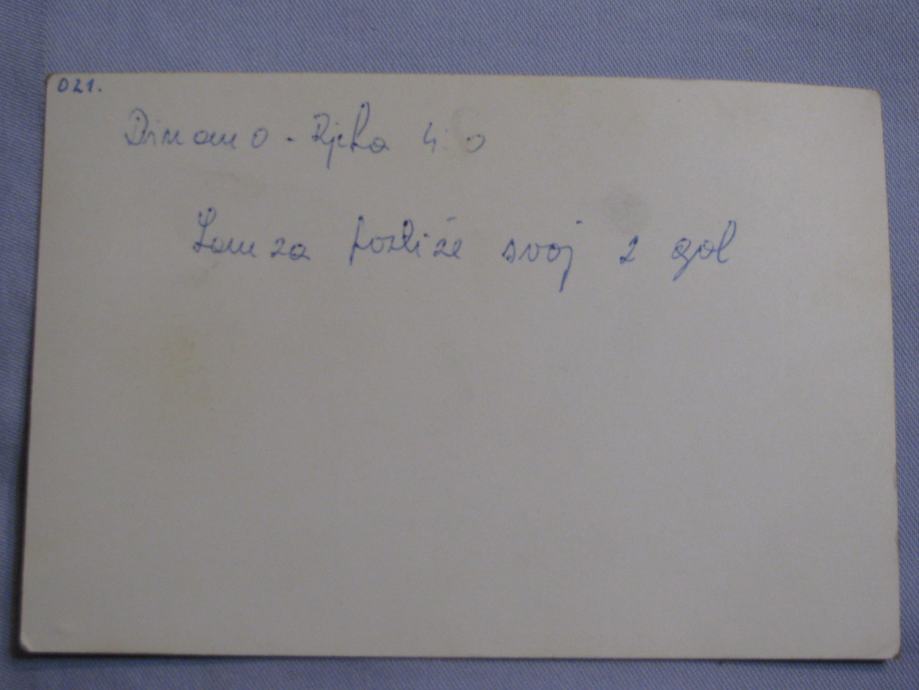 021.
Dinamo - Rijeka 4:0
Lamza postiže svoj 2 gol